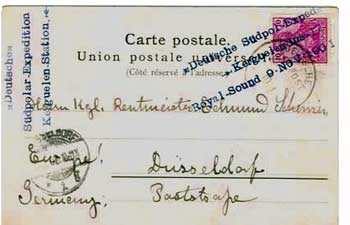 »Deutsche«
Südpolar-Expedition
Kerguelen-Station.
Carte postale.
Union postale
(Côté réservé à l'adresse
»Deutsche Südpol.-Exped.
»Kerguelen-
Royal-Sound 9. NOV. 1901
Herrn Kgl. Rentmeister Edmund
Europe!
Düsseldorf
Germany.